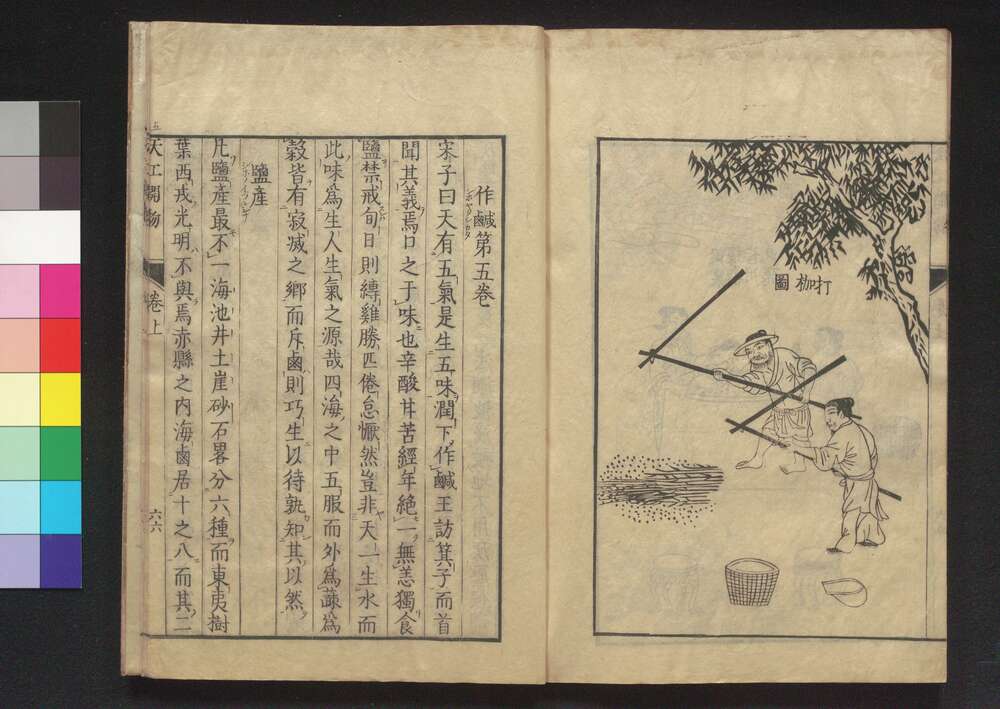 打枷圖
作鹹第五卷
宋子曰天有五氣是生五味潤下作鹹王訪箕子而首
聞其義焉口之于味也辛酸甘苦經年絕一無恙獨食
鹽禁戒旬日則縛雞勝匹倦怠懨然豈非天一生水而
此味爲生人生氣之源哉四海之中五服而外爲蔬爲
穀皆有寂滅之鄉而斥鹵則巧生以待孰知其以然
鹽產
凡鹽產最不一海池井土崖砂石畧分六種而東夷樹
葉西戎光明不與焉赤縣之内海鹵居十之八而其二
天工開物
卷上
六六